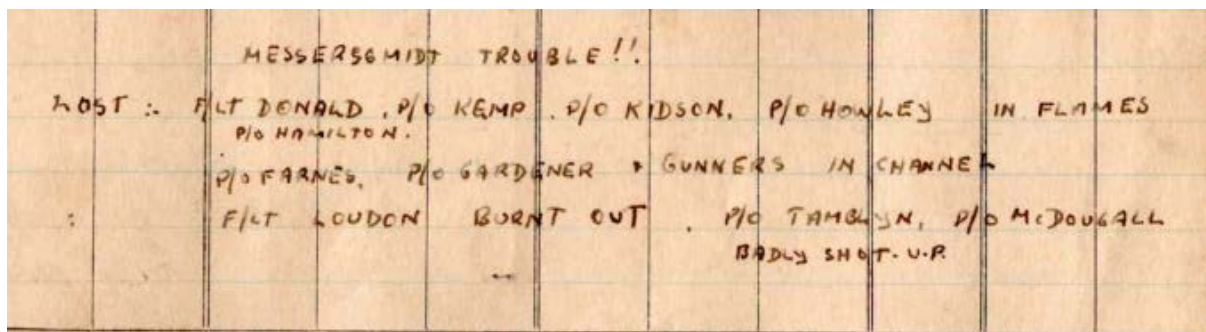 MESSERSGMIDT TROUBLE!!
LOST :- F/LT DONALD, P/O KEMP. P/O KIDSON, P/O HOWLEY IN FLAMES
P/O HAMILTON.
P/O FARNES, P/O GARDENER & GUNNERS IN CHANNEL
: F/LT LOUDON BURNT OUT. P/O TAMBLYN, P/O McDOUGALL
BADLY SHOT. U.P.